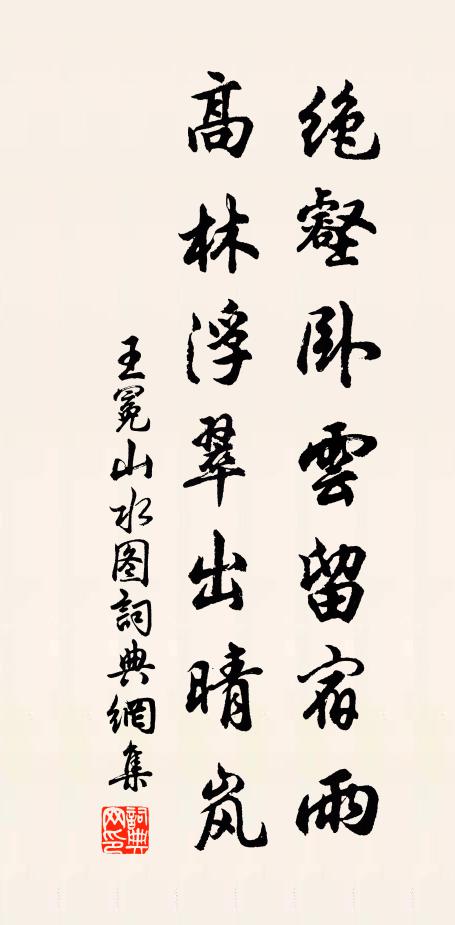 絶壑卧雲留宿雨
高林浮翠出晴岚
王冕山水图詞典網集
詞典网印